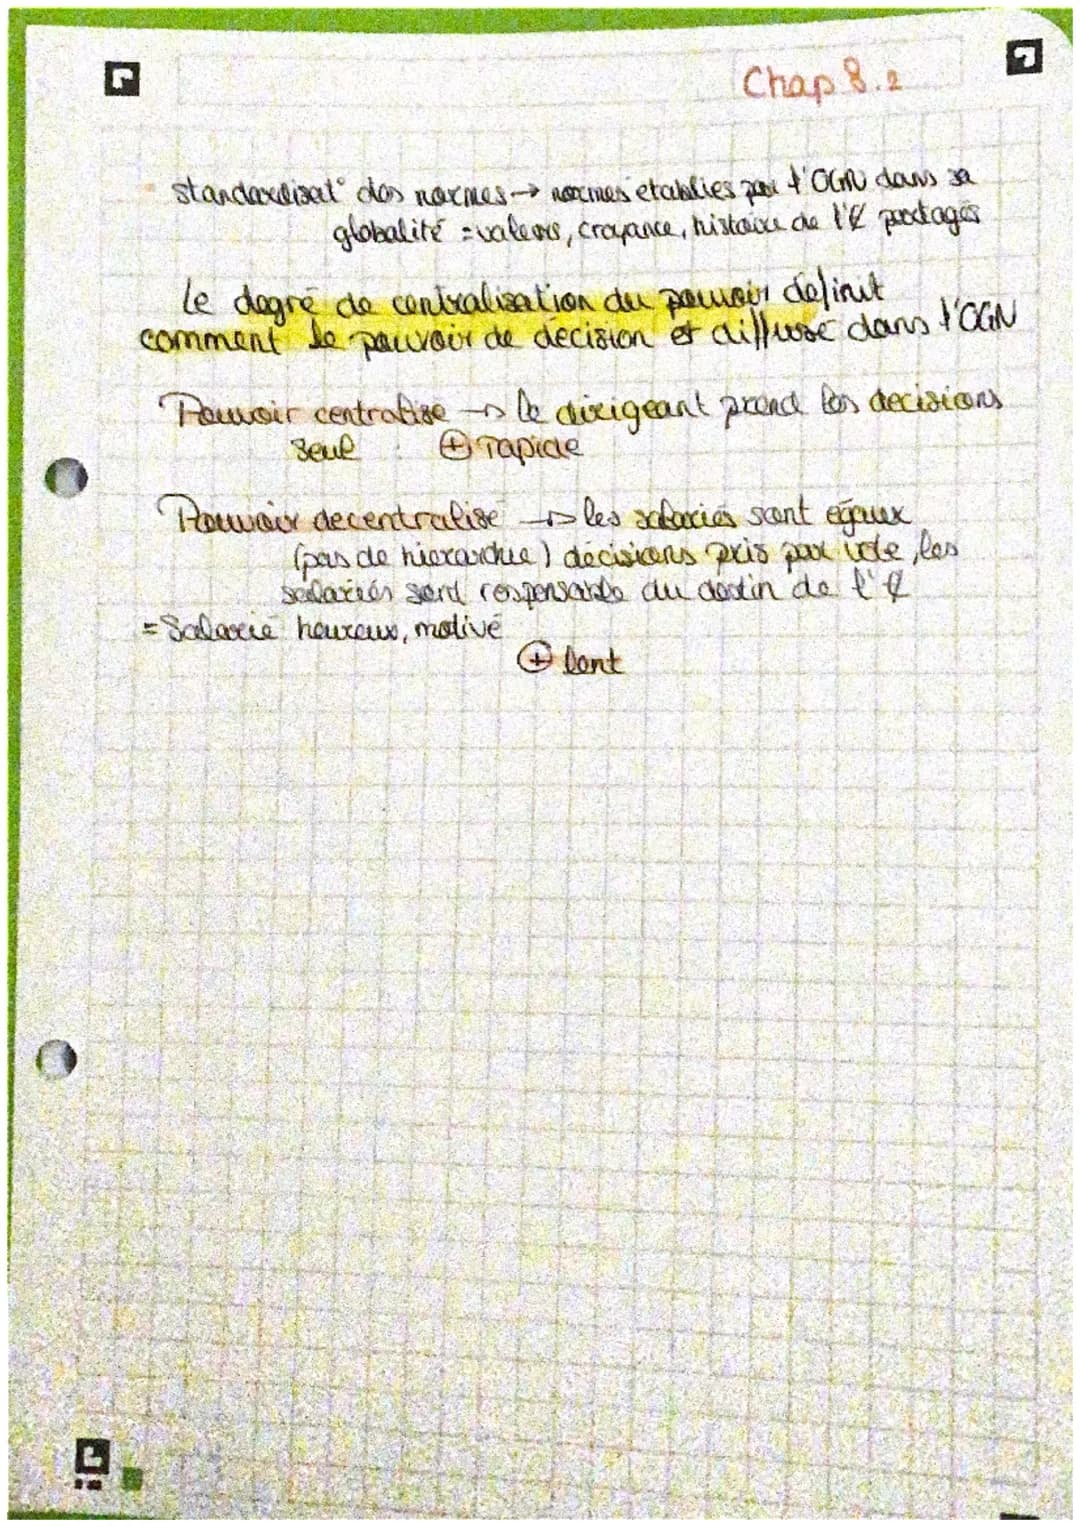 Chap 8.2
standardisat° des normes → normes établies par l'OGN dans sa
globalité = valeurs, croyance, histoire de l'E partagés
Le degré de centralisation du pouvoir définit
comment le pouvoir de décision et diffusé dans l'OGN
Pouvoir centralisé → le dirigeant prend les decisions
seul : ⊕ rapide
Pouvoir decentralisé → les salariés sont égaux
(pas de hierarchie) décisions pris par vote, les
salariés sont responsable du destin de l'E
= Salarié heureux, motivé
⊕ lent